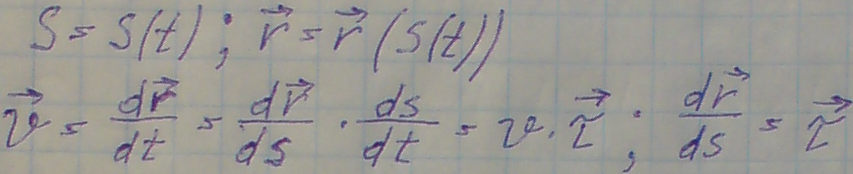 S = S(t); r⃗ = r⃗(S(t))
v⃗ = dr⃗/dt = dr⃗/ds · ds/dt = v · τ⃗; dr⃗/ds = τ⃗